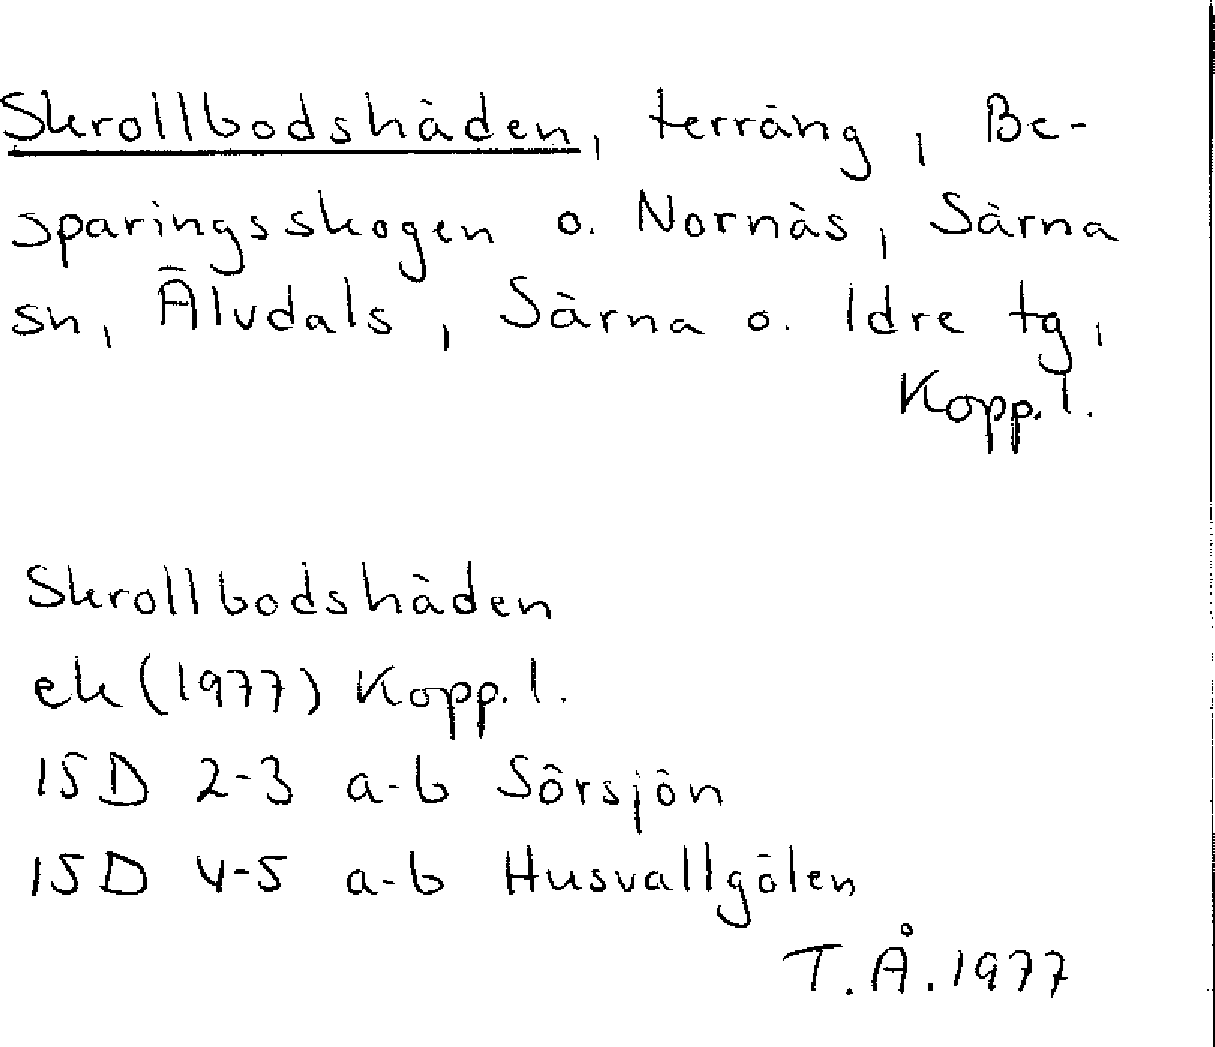 Skrollbodshäden, terräng, Be-
sparingsskogen o. Nornäs, Särna
sn, Älvdals, Särna o. Idre tg,
Kopp. l.
Skrollbodshäden
ek (1977) Kopp. l.
15D 2-3 a-b Sörsjön
15D 4-5 a-b Husvallgölen
T.Å. 1977